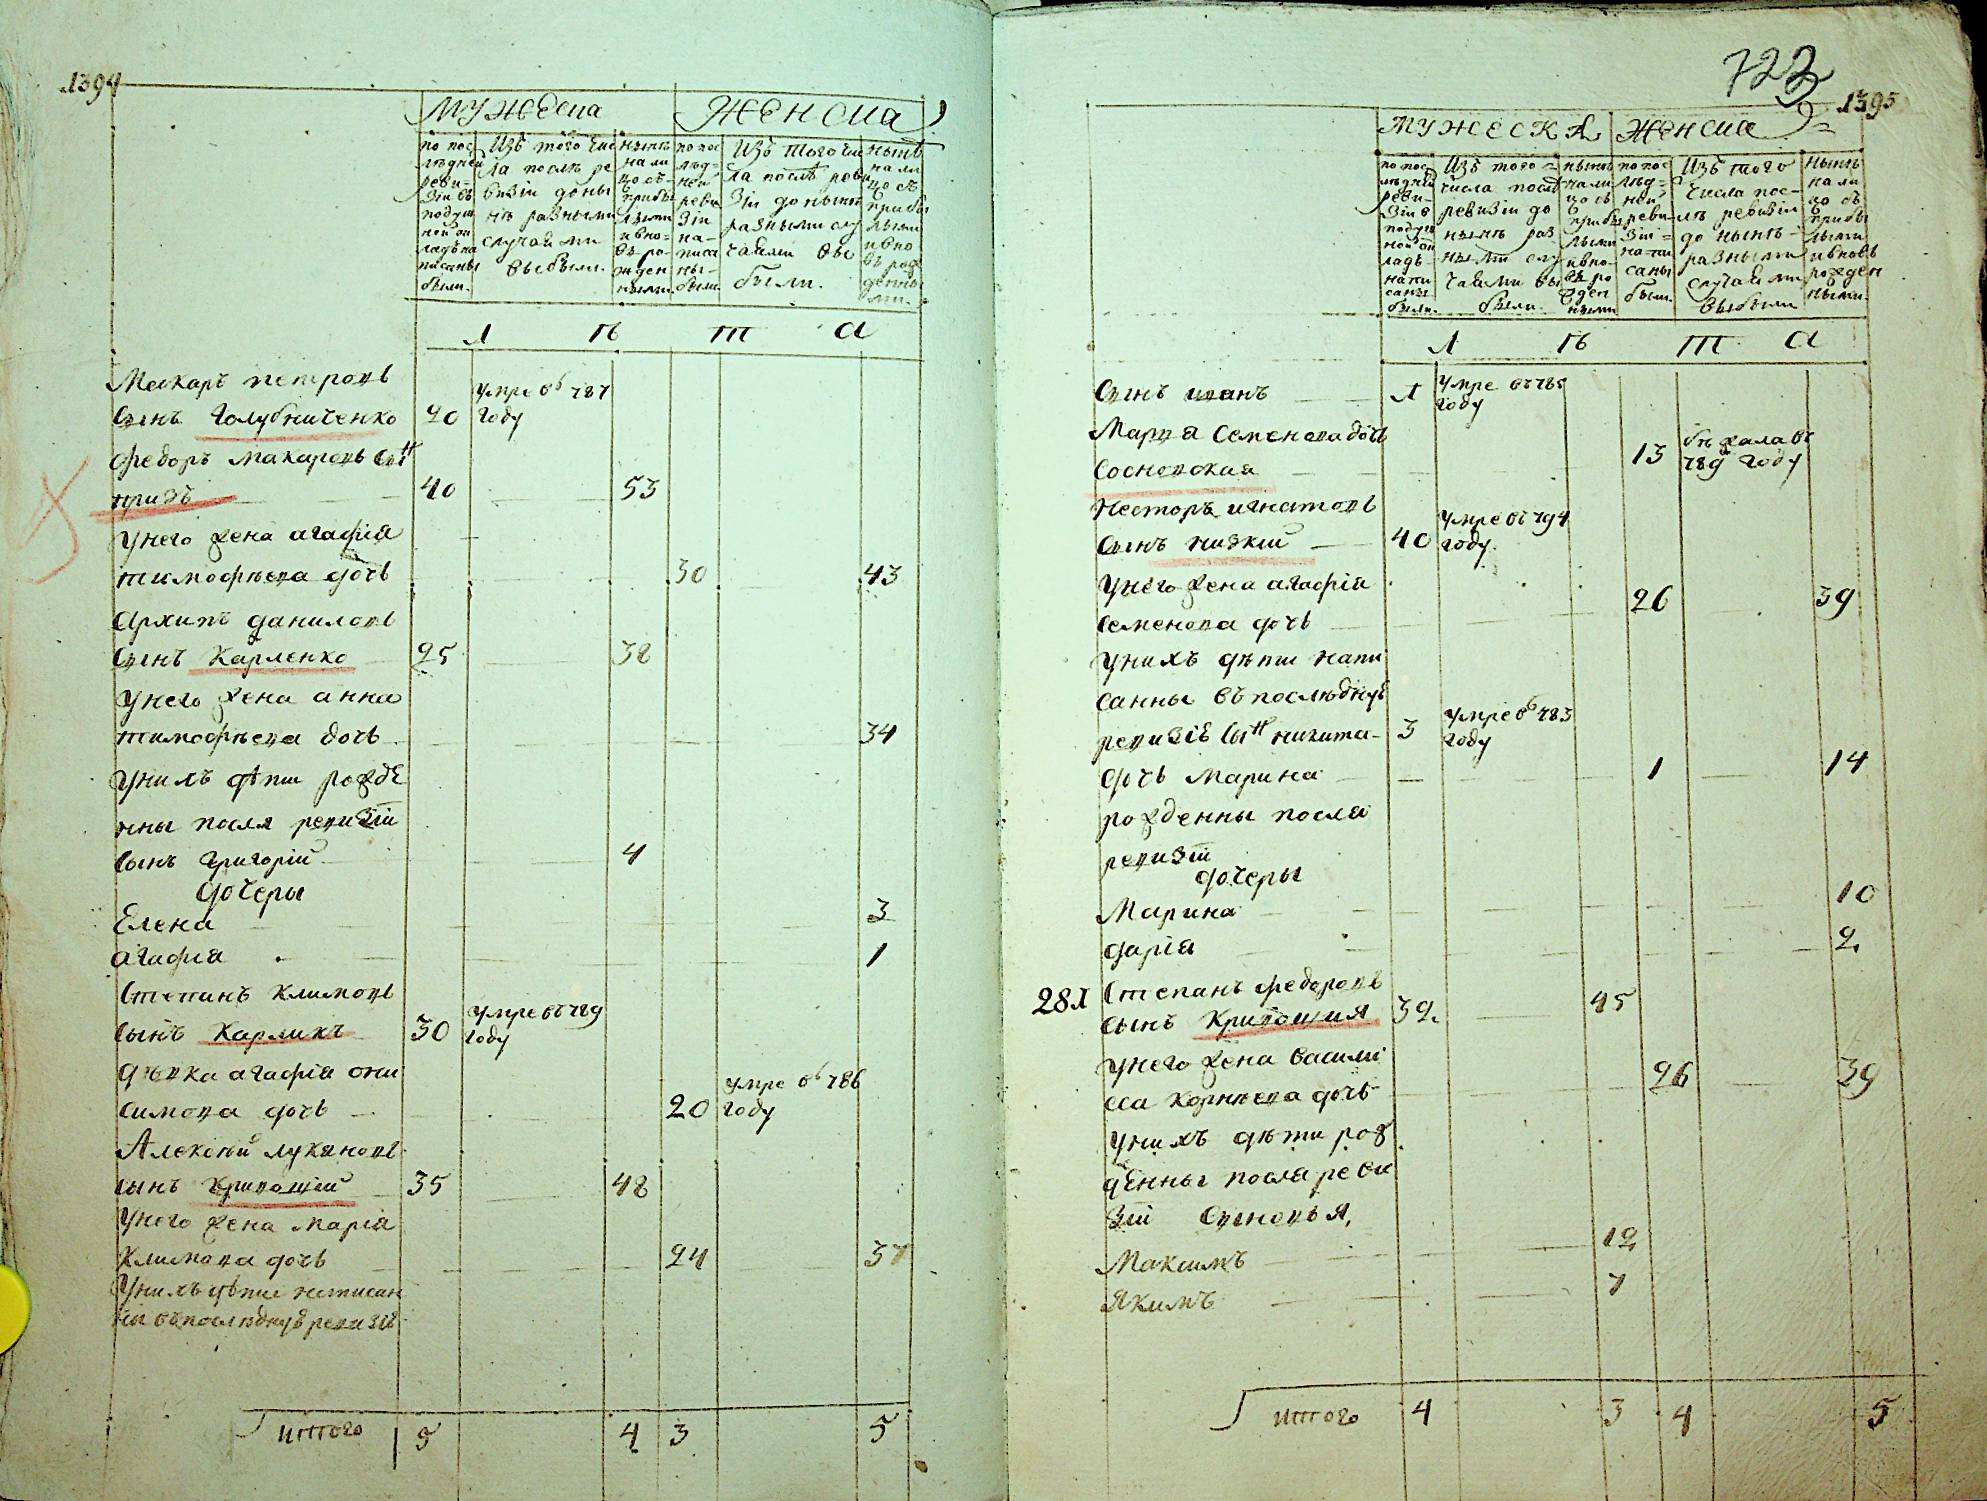 1394
мужеска
женска
по пос
лѣдней
реви-
зіи въ
подуш
ной ок
ладъ на
писаны
были.
Изъ того чис
ла послѣ ре
визіи до ны
нѣ разными
случаями
выбыли.
нынѣ
на ли
цо съ
прибы
лыми
и вно-
въ ро-
жден
ными
по пос
лѣд-
ней
реви
зіи
на-
писа
ны-
были
Изъ того чис
ла послѣ реви
зіи до нынѣ
разными слу
чаями вы
были.
нынѣ
на ли
цо съ
прибы
лыми
и вно
въ рож
денны
ми.
л ѣ т а
Макаръ петровъ
сынъ Голубниченко 40 умре въ 787 году
Федоръ макаровъ сынъ
40 53
у него жена агафія
тимофѣева дочь 30 43
Архипъ даниловъ
сынъ Карленко 25 38
у него жена анна
тимофѣева дочь 34
у нихъ дѣти рожде
нны посля ревизіи
сынъ григорій 4
дочеры
Елена 3
агафія 1
Степанъ климовъ
сынъ Карликъ 30 умре въ 789 году
дѣвка агафія они
симова дочь 20 умре въ 786 году
Алексѣй лукяновъ
сынъ Кривошій 35 48
у него жена марія
климова дочь 24 37
у нихъ дѣти написан
ны въ послѣднуѣ ревизіѣ
итого 5 4 3 5
723
1395
мужеска
женска
по пос
лѣдней
реви-
зіи в
подуш
ной ок
ладъ-
напи
саны
были.
Изъ того
числа послѣ
ревизіи до
нынѣ раз
ными слу
чаями вы
были.
нынѣ
на ли
цо съ
прибы
лыми
и вно-
въ ро
жден
ными
по пос
лѣд-
ней
реви-
зіи
напи
саны
были.
Изъ того
числа пос-
лѣ ревизіи
до нынѣ-
разными
случаями
выбыли
нынѣ
на ли
цо съ
прибы
лыми
и вновь
рожден
ными.
л ѣ т а
сынъ иванъ 1 умре въ 785 году
Марія Семенова дочь
Сосновская 13 бѣжала въ 789 году
Несторъ игнатовъ
сынъ низкій 40 умре въ 794 году.
у него жена агафія
семенова дочь 26 39
у нихъ дѣти напи
санны въ послѣднуѣ
ревизіѣ сынъ никита- 3 умре въ 783 году
дочь марина 1 14
рожденны посля
ревизіи
дочеры
Марина 10
дарія 2.
281 Степанъ федоровъ
сынъ Кривошия 32. 45
у него жена васили
сса корнѣева дочь 26 39
у нихъ дѣти рож
денны посля реви
зіи сыновья,
Максимъ 12
Якимъ 7
итого 4 3 4 5